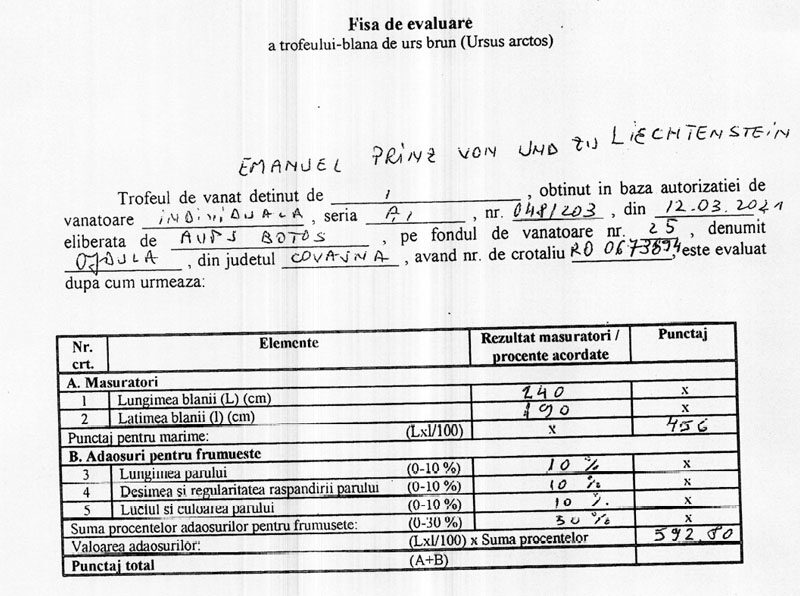 Fisa de evaluare
a trofeului-blana de urs brun (Ursus arctos)
EMANUEL PRINZ VON UND ZU LIECHTENSTEIN
Trofeul de vanat detinut de , obtinut in baza autorizatiei de
vanatoare INDIVIDUALA , seria A1 , nr. 048/203 , din 12.03.2021
eliberata de AVPS BOTOS , pe fondul de vanatoare nr. 25 , denumit
OJDULA , din judetul COVASNA , avand nr. de crotaliu RO 0673894, este evaluat
dupa cum urmeaza:
Nr. crt. Elemente Rezultat masuratori / procente acordate Punctaj
A. Masuratori
1 Lungimea blanii (L) (cm) 240 x
2 Latimea blanii (l) (cm) 190 x
Punctaj pentru marime: (Lxl/100) x 456
B. Adaosuri pentru frumueste
3 Lungimea parului (0-10 %) 10 % x
4 Desimea şi regularitatea raspandirii parului (0-10 %) 10 % x
5 Luciul si culoarea parului (0-10 %) 10 % x
Suma procentelor adaosurilor pentru frumusete: (0-30 %) 30 % x
Valoarea adaosurilor: (Lxl/100) x Suma procentelor 592.80
Punctaj total (A+B)